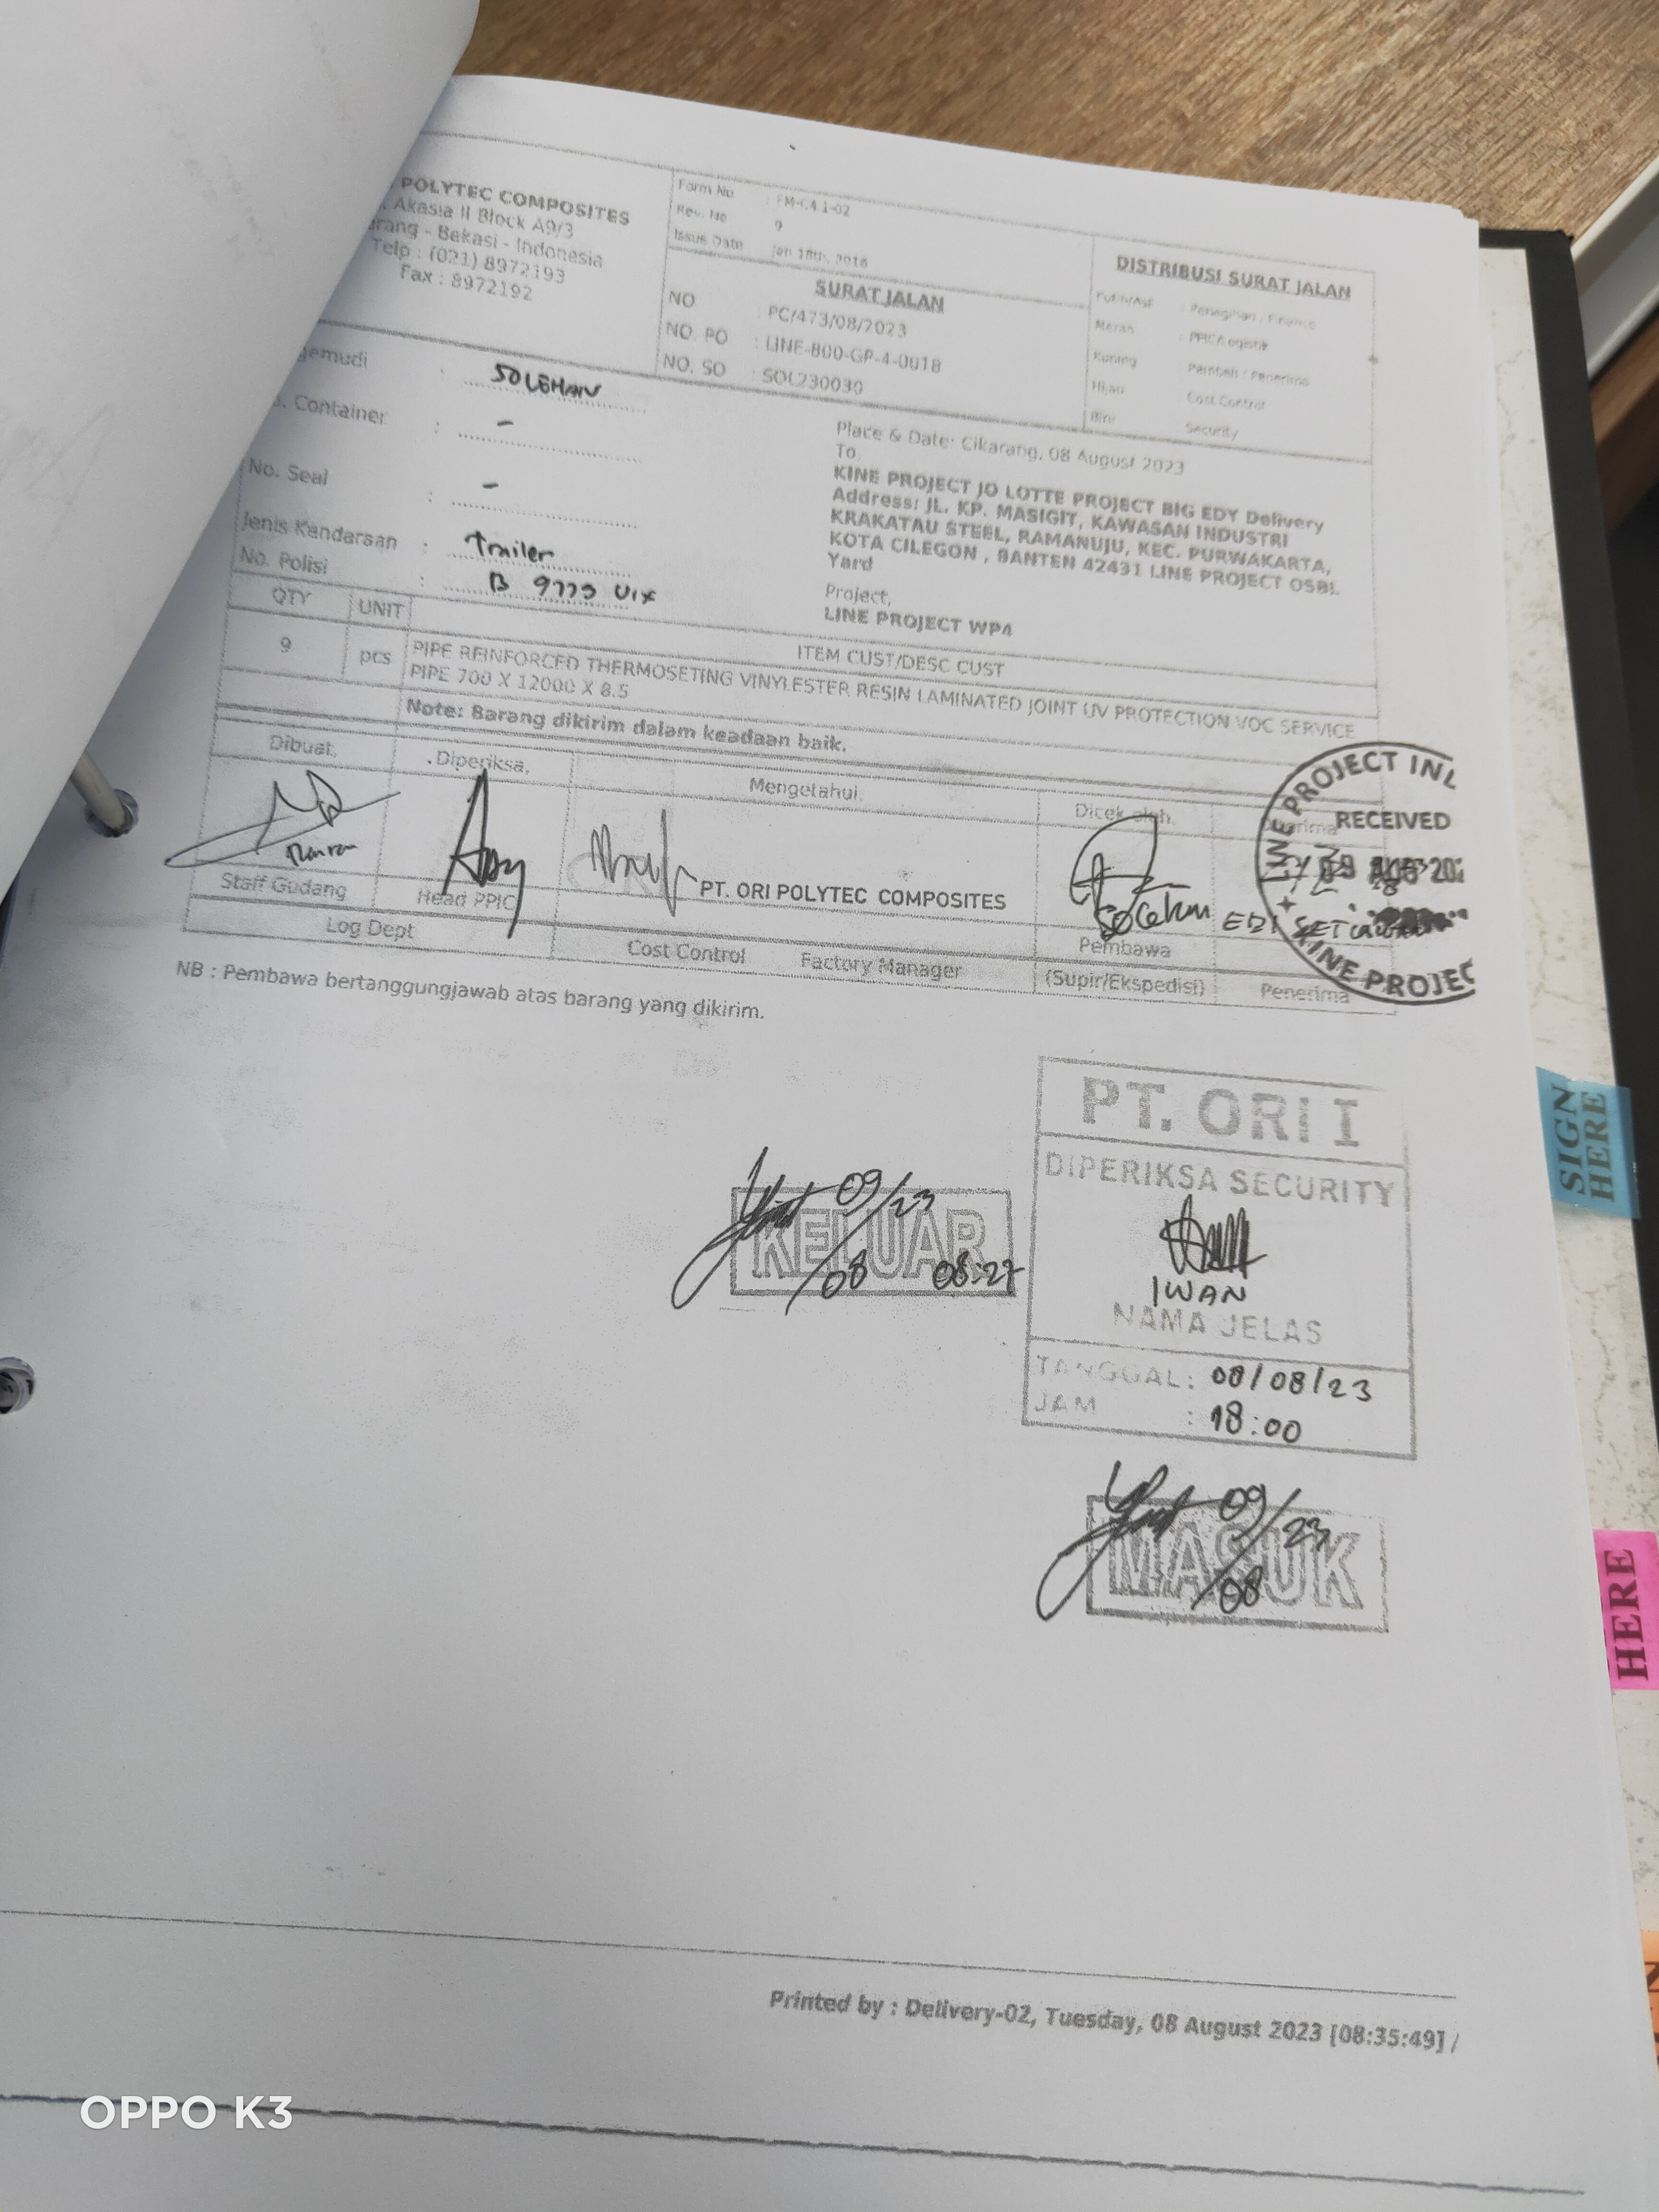 POLYTEC COMPOSITES
. Akasia II Block A9/3
rang - Bekasi - Indonesia
Telp : (021) 8972193
Fax : 8972192
Form No : FM-C4.1-02
Rev. No 9
Issue Date Jan 18th, 2016
SURAT JALAN
NO : PC/473/08/2023
NO. PO : LINE-800-GP-4-0018
NO. SO : SOL230030
DISTRIBUSI SURAT JALAN
Penagihan / Finance
Merah : PPIC/Logistik
Kuning Pembeli / Penerima
Hijau Cost Control
Biru Security
gemudi : SOLEHAN
. Container : -
No. Seal : -
Jenis Kendarsan : Trailer
No. Polisi : B 9773 UIX
Place & Date: Cikarang, 08 August 2023
To
KINE PROJECT JO LOTTE PROJECT BIG EDY Delivery
Address: JL. KP. MASIGIT, KAWASAN INDUSTRI
KRAKATAU STEEL, RAMANUJU, KEC. PURWAKARTA,
KOTA CILEGON , BANTEN 42431 LINE PROJECT OSBL
Yard
Project,
LINE PROJECT WP4
QTY UNIT ITEM CUST/DESC CUST
9 pcs PIPE REINFORCED THERMOSETING VINYLESTER RESIN LAMINATED JOINT UV PROTECTION VOC SERVICE
PIPE 700 X 12000 X 8.5
Note: Barang dikirim dalam keadaan baik.
Dibuat, Diperiksa, Mengetahui, Dicek oleh,
LINE PROJECT INL
RECEIVED
09 AUG 202
KINE PROJEC
PT. ORI POLYTEC COMPOSITES
Solehan EDI SETIAWAN
Staff Gudang Head PPIC Pembawa
Log Dept Cost Control Factory Manager (Supir/Ekspedisi) Penerima
NB : Pembawa bertanggungjawab atas barang yang dikirim.
PT. ORI I
DIPERIKSA SECURITY
IWAN
NAMA JELAS
TANGGAL : 08/08/23
JAM : 18:00
KELUAR
09/08/23
08:27
MASUK
09/08/23
SIGN HERE
HERE
Printed by : Delivery-02, Tuesday, 08 August 2023 [08:35:49] /
OPPO K3